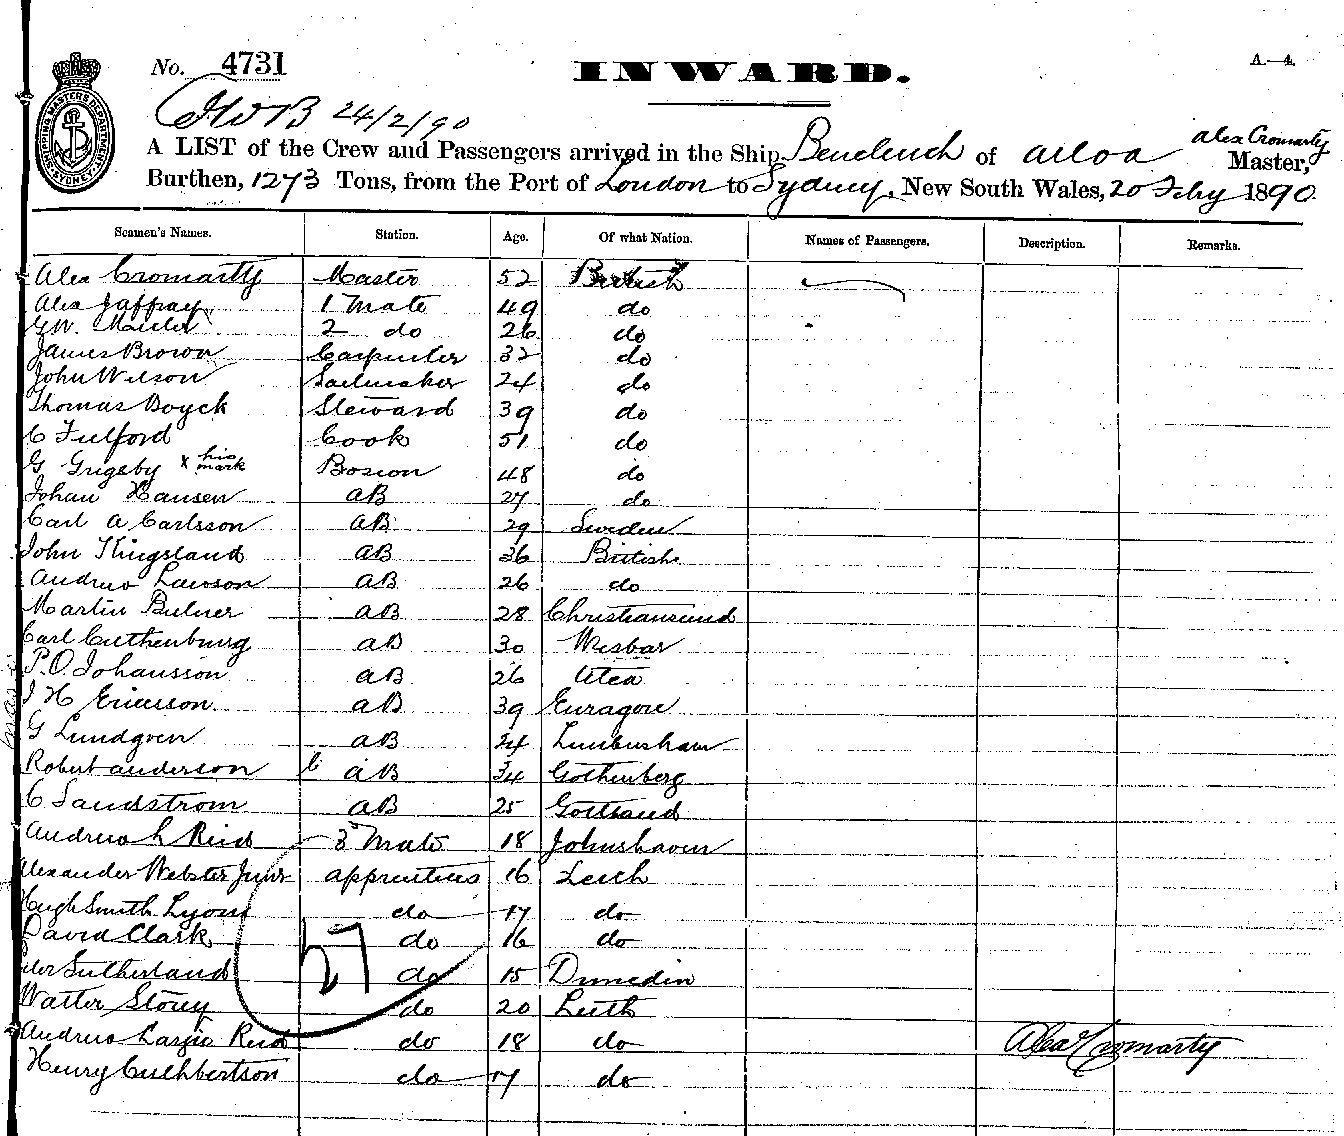 No. 4731 INWARD. A.—4.
SHIPPING MASTERS DEPARTMENT SYDNEY
24/2/90
A LIST of the Crew and Passengers arrived in the Ship of Alloa Alex Cromarty Master,
Burthen, 1273 Tons, from the Port of London to Sydney, New South Wales, 20 Feby 1890.
Seamen's Names. Station. Age. Of what Nation. Names of Passengers. Description. Remarks.
Alex Cromarty Master 52 British
Alex Jaffray 1 Mate 49 do
G.W. 2 do 26 do
James Brown Carpenter 32 do
John Wilson Sailmaker 24 do
Thomas Boyck Steward 39 do
C Fulford Cook 51 do
G Grigsby x his mark Bosion 48 do
Johan Hansen AB 27 do
Carl A Carlsson AB 29 Sweden
John Kingsland AB 36 British
Andrew Lawson AB 26 do
Martin Bulner AB 28 Christiansund
Carl Cuthenburg AB 30 Wisbar
P.O. Johansson AB 26 Utea
J H Ericsson AB 39
G Lundgren AB 24
Robert Anderson AB 34 Gothenberg
C Sandstrom AB 25 Gottland
Andrew L Reid 3 Mate 18 Johnshaven
Alexander Webster Junr apprentices 16 Leith
Hugh Smith Lyons do 17 do
David Clark do 16 do
Peter Sutherland do 15 Dunedin
Walter Storey do 20 Leith
Andrew Reid do 18 do Alex Cromarty
Henry Cuthbertson do 17 do
27